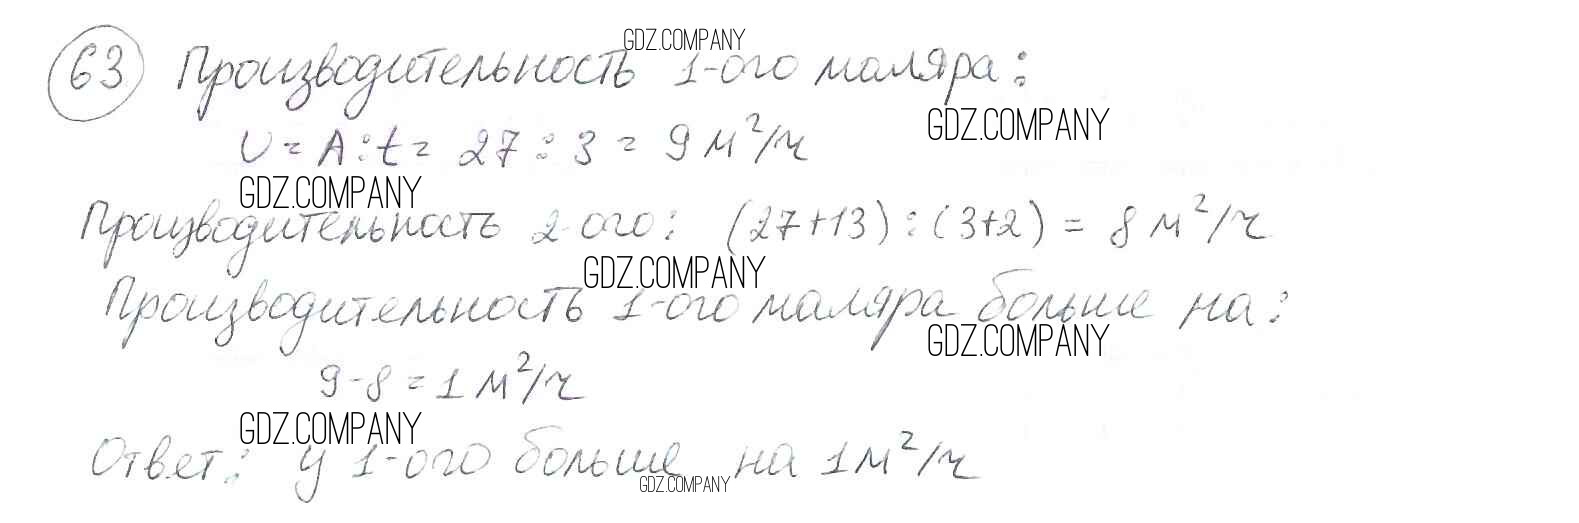 GDZ.COMPANY
63 Производительность 1-ого маляра:
GDZ.COMPANY
υ = A : t = 27 : 3 = 9 м²/ч
GDZ.COMPANY
Производительность 2-ого: (27+13) : (3+2) = 8 м²/ч
GDZ.COMPANY
Производительность 1-ого маляра больше на:
GDZ.COMPANY
9-8 = 1 м²/ч
GDZ.COMPANY
Ответ: у 1-ого больше на 1 м²/ч
GDZ.COMPANY